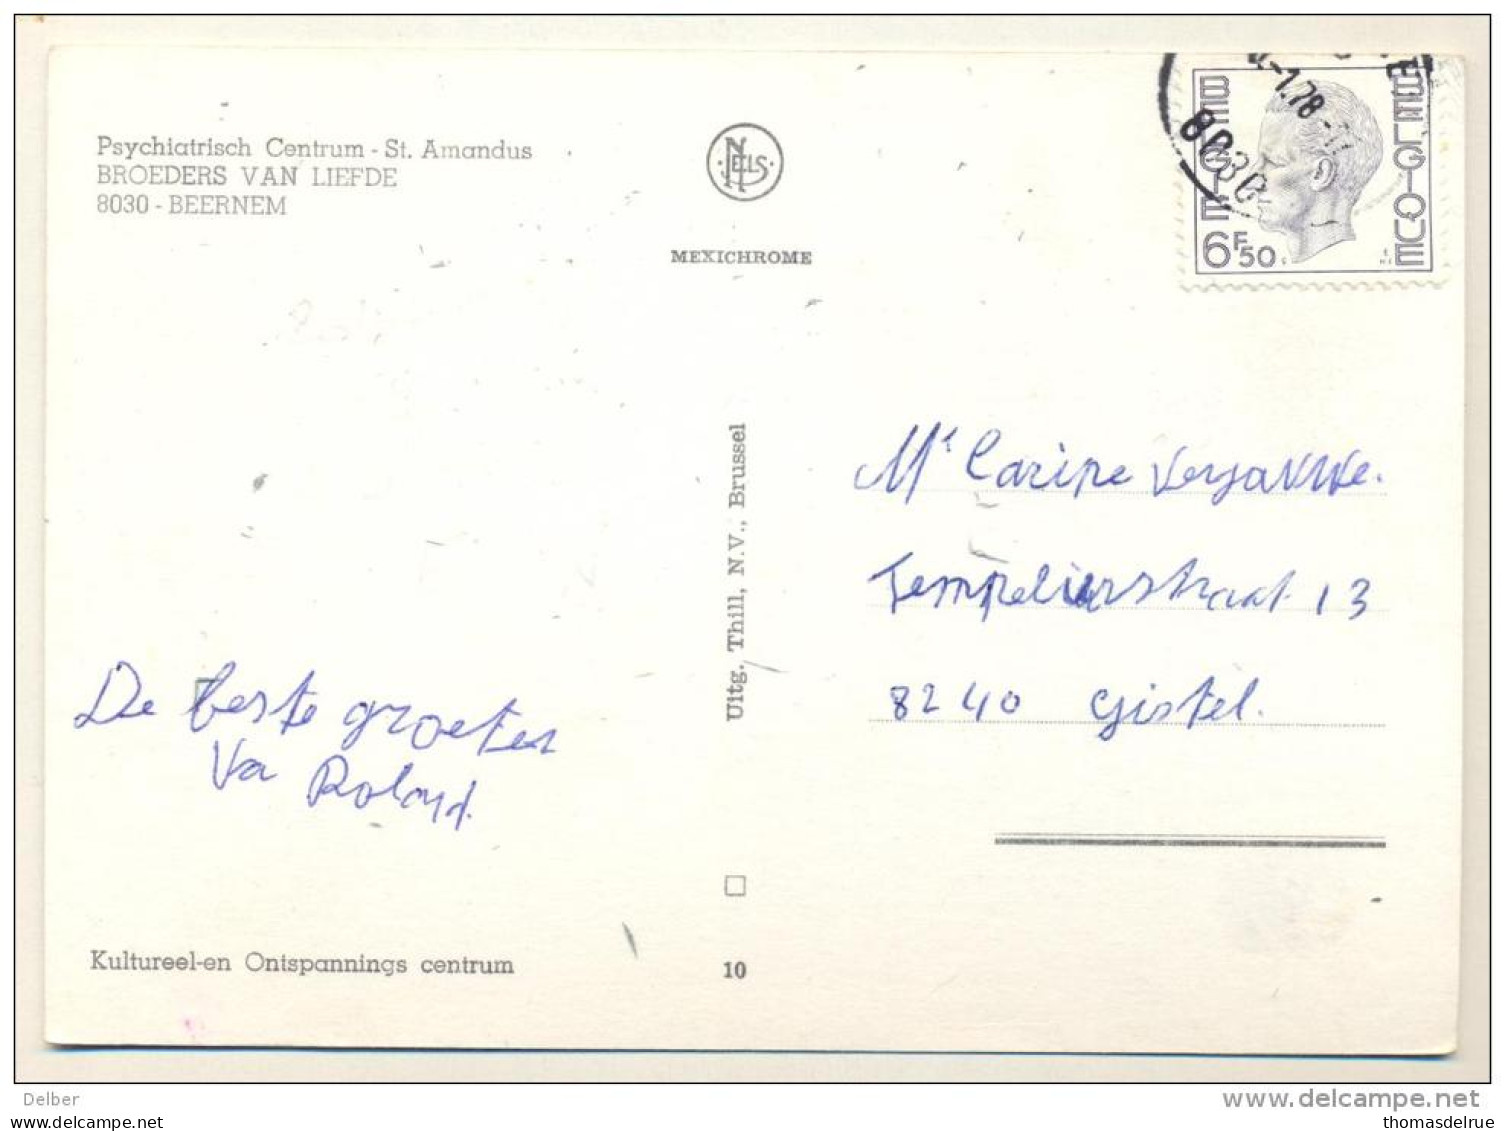 Psychiatrisch Centrum - St. Amandus
BROEDERS VAN LIEFDE
8030 - BEERNEM
NELS
MEXICHROME
BELGIE
BELGIQUE
6F50
-1.78
8030
Uitg. Thill, N.V., Brussel
Carine
Tempelierstraat 13
8240 Gistel.
De beste groeten
Va Roland.
Kultureel-en Ontspannings centrum
10
Delber
www.delcampe.net
thomasdelrue